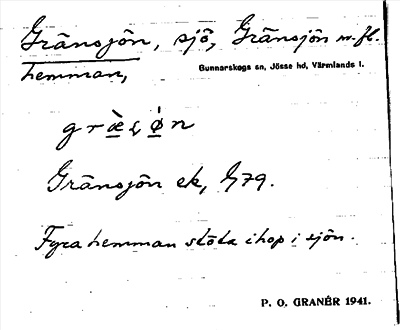 Gränsjön, sjö, Gränsjön m.fl.
hemman,
Gunnarskogs sn, Jösse hd, Värmlands l.
Gränsjön ek, G79.
Fyra hemman stöta ihop i sjön.
P. O. GRANÉR 1941.